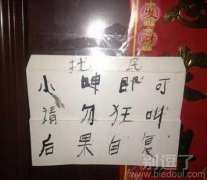 扰 民
小 呻 即 可
请 勿 狂 叫
后 果 自 复
别逗了
www.biedoul.com